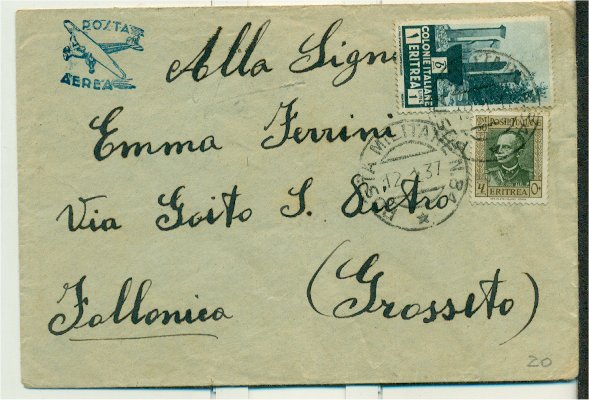 POSTA
AEREA
Alla Signa
COLONIE ITALIANE
1 ERITREA 1
Emma Ferrini
POSTA MILITARE N 84
12. 37
POSTE ITALIANE
ERITREA
Via Goito S. Pietro
Follonica (Grosseto)
20